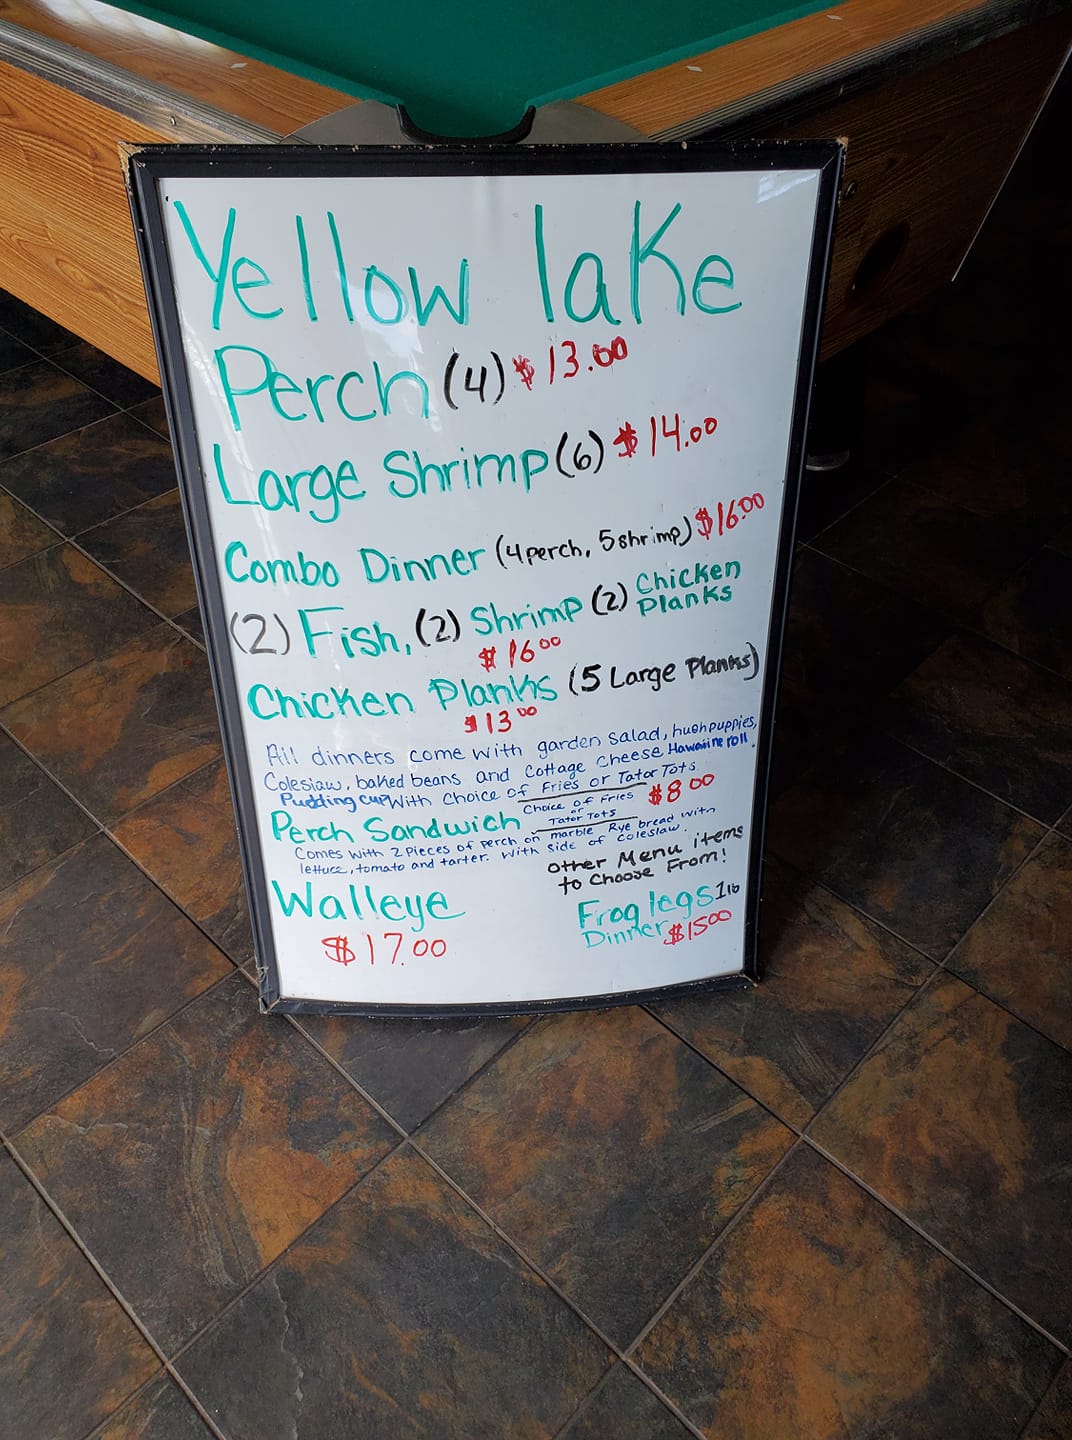 Yellow lake
Perch (4) $13.00
Large Shrimp (6) $14.00
Combo Dinner (4 perch, 5 shrimp) $16.00
(2) Fish, (2) Shrimp (2) Chicken Planks
$16.00
Chicken Planks (5 Large Planks)
$13.00
All dinners come with garden salad, hushpuppies,
Coleslaw, baked beans and Cottage Cheese Hawaiine roll
Pudding cup With Choice of Fries or Tator Tots
Perch Sandwich Choice of Fries or Tator Tots $8.00
Comes with 2 pieces of Perch on marble Rye bread with
lettuce, tomato and tarter. With side of Coleslaw.
other Menu items
to Choose From!
Walleye
$17.00
Frog legs 1 lb
Dinner $15.00